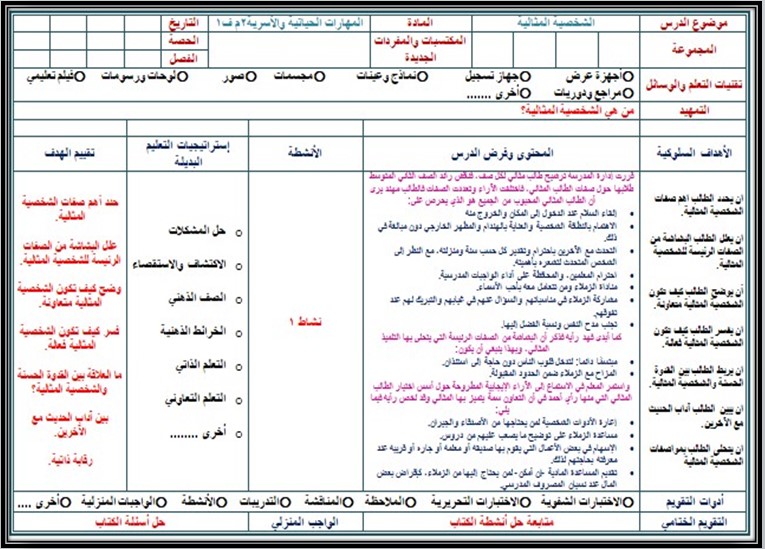 موضوع الدرس
الشخصية المثالية
المادة
المهارات الحياتية والأسرية٢م ف١
التاريخ
المجموعة
المكتسبات والمفردات الجديدة
الحصة
الفصل
تقنيات التعلم والوسائل
أجهزة عرض
جهاز تسجيل
نماذج وعينات
مجسمات
صور
لوحات ورسومات
فيلم تعليمي
مراجع ودوريات
أخرى .......
التمهيد
من هي الشخصية المثالية؟
الأهداف السلوكية
المحتوى وفرض الدرس
الأنشطة
إستراتيجيات التعليم البديلة
تقييم الهدف
ان يحدد الطالب اهم صفات
الشخصية المثالية.
ان يعلل الطالب البشاشة من
الصفات الرئيسة للشخصية
المثالية.
أن يوضح الطالب كيف تكون
الشخصية المثالية متعاونة.
ان يفسر الطالب كيف تكون
الشخصية المثالية فعالة.
ان يربط الطالب بين القدوة
الحسنة والشخصية المثالية.
ان يبين الطالب آداب الحديث
مع الآخرين.
ان يتحلى الطالب بمواصفات
الشخصية المثالية.
قررت إدارة المدرسة ترشيح طالب مثالي لكل صف، فناقش رائد الصف الثاني المتوسط
طلابها حول صفات الطالب المثالي، فاختلفت الآراء وتعددت الصفات فالطالب مهند يرى
أن الطالب المثالي المحبوب من الجميع هو الذي يحرص على:
إلقاء السلام عند الدخول إلى المكان والخروج منه
الاهتمام بالنظافة الشخصية والعناية بالهندام والمظهر الخارجي دون مبالغة في
ذلك.
التحدث مع الآخرين باحترام وتقدير كل حسب سنة ومنزلته، مع النظر إلى
الشخص المتحدث لتشعره بأهميته.
احترام المعلمين، والمحافظة على أداء الواجبات المدرسية.
مناداة الزملاء ومن تتعامل معه بأحب الأسماء.
مشاركة الزملاء في مناسباتهم والسؤال عنهم في غيابهم والتبريك لهم عند
تفوقهم.
تجنب مدح النفس ونسبة الفضل إليها.
كما أبدى فهد رأيه فذكر أن البشاشة من الصفات الرئيسة التي يتحلى بها التلميذ
المثالي، وبهذا ينبغي أن يكون:
مبتسمًا دائما: لتدخل قلوب الناس دون حاجة إلى استئذان.
المزاح مع الزملاء ضمن الحدود المقبولة.
واستمر المعلم في الاستماع إلى الآراء الإيجابية المطروحة حول أسس اختيار الطالب
المثالي التي منها رأي أحمد في أن التعاون سمة يتميز بها المثالي وقد لخص رأيه فيما
يلي:
إعارة الأدوات الشخصية لمن يحتاجها من الأصدقاء والجيران.
مساعدة الزملاء على توضيح ما يصعب عليهم من دروس.
الإسهام في بعض الأعمال التي يقوم بها صديقه أو معلمه أو جاره أو قريبه عند
معرفته بحاجتهم لذلك.
تقديم المساعدة المادية -إن أمكن- لمن يحتاج إليها من الزملاء، كإقراض بعض
المال عند نسيان المصروف المدرسي.
نشاط ١
حل المشكلات
الاكتشاف والاستقصاء
الصف الذهني
الخرائط الذهنية
التعلم الذاتي
التعلم التعاوني
أخرى ........
حدد أهم صفات الشخصية
المثالية.
علل البشاشة من الصفات
الرئيسة للشخصية المثالية.
وضح كيف تكون الشخصية
المثالية متعاونة.
فسر كيف تكون الشخصية
المثالية فعالة.
ما العلاقة بين القدوة الحسنة
والشخصية المثالية؟
بين آداب الحديث مع
الآخرين.
رقابة ذاتية.
أدوات التقويم
الاختبارات الشفوية
الاختبارات التحريرية
الملاحظة
المناقشة
التدريبات
الأنشطة
الواجبات المنزلية
أخرى ....
التقويم الختامي
متابعة حل أنشطة الكتاب
الواجب المنزلي
حل أسئلة الكتاب